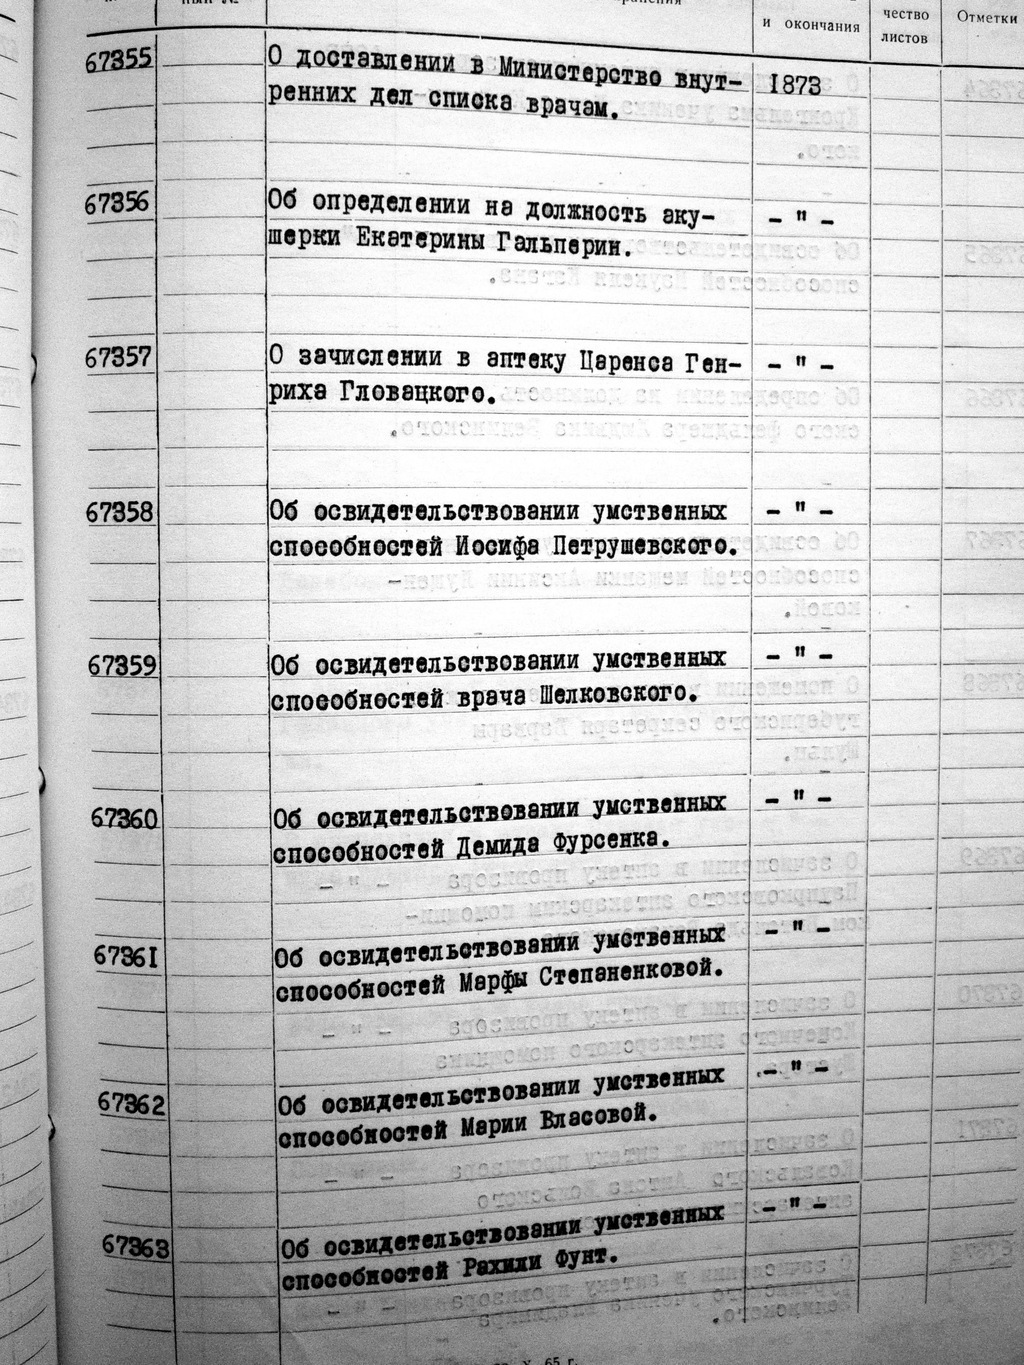 и окончания
чество
листов
Отметки
67355 О доставлении в Министерство внут- 1873
ренних дел списка врачам.
67356 Об определении на должность аку- - " -
шерки Екатерины Гальперин.
67357 О зачислении в аптеку Царенса Ген- - " -
риха Гловацкого.
67358 Об освидетельствовании умственных - " -
способностей Иосифа Петрушевского.
67359 Об освидетельствовании умственных - " -
способностей врача Шелковского.
67360 Об освидетельствовании умственных - " -
способностей Демида Фурсенка.
67361 Об освидетельствовании умственных - " -
способностей Марфы Степаненковой.
67362 Об освидетельствовании умственных - " -
способностей Марии Власовой.
67363 Об освидетельствовании умственных - " -
способностей Рахили Фунт.
65 г.